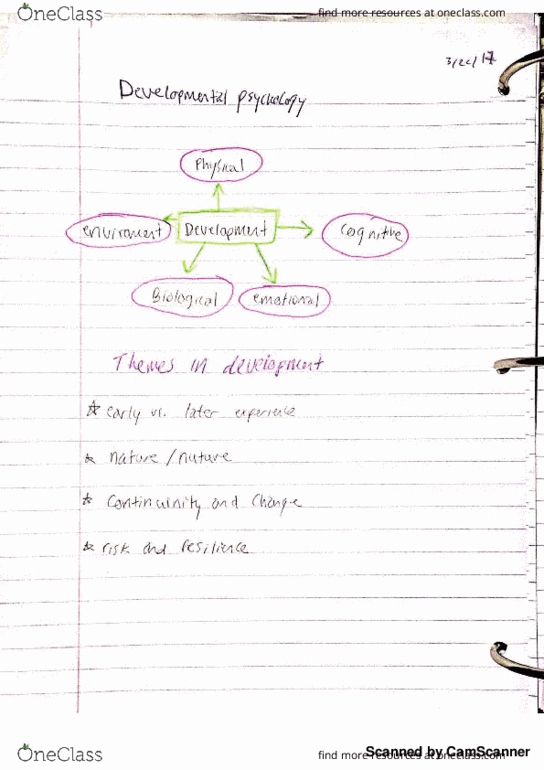 OneClass
find more resources at oneclass.com
Developmental psychology
Physical
enviroment
Development
Cognitive
Biological
emotional
Themes in development
☆ early vs. later experience
☆ nature / nuture
☆ Continuinity and change
☆ risk and resilience
OneClass
find more resources at oneclass.com
Scanned by CamScanner